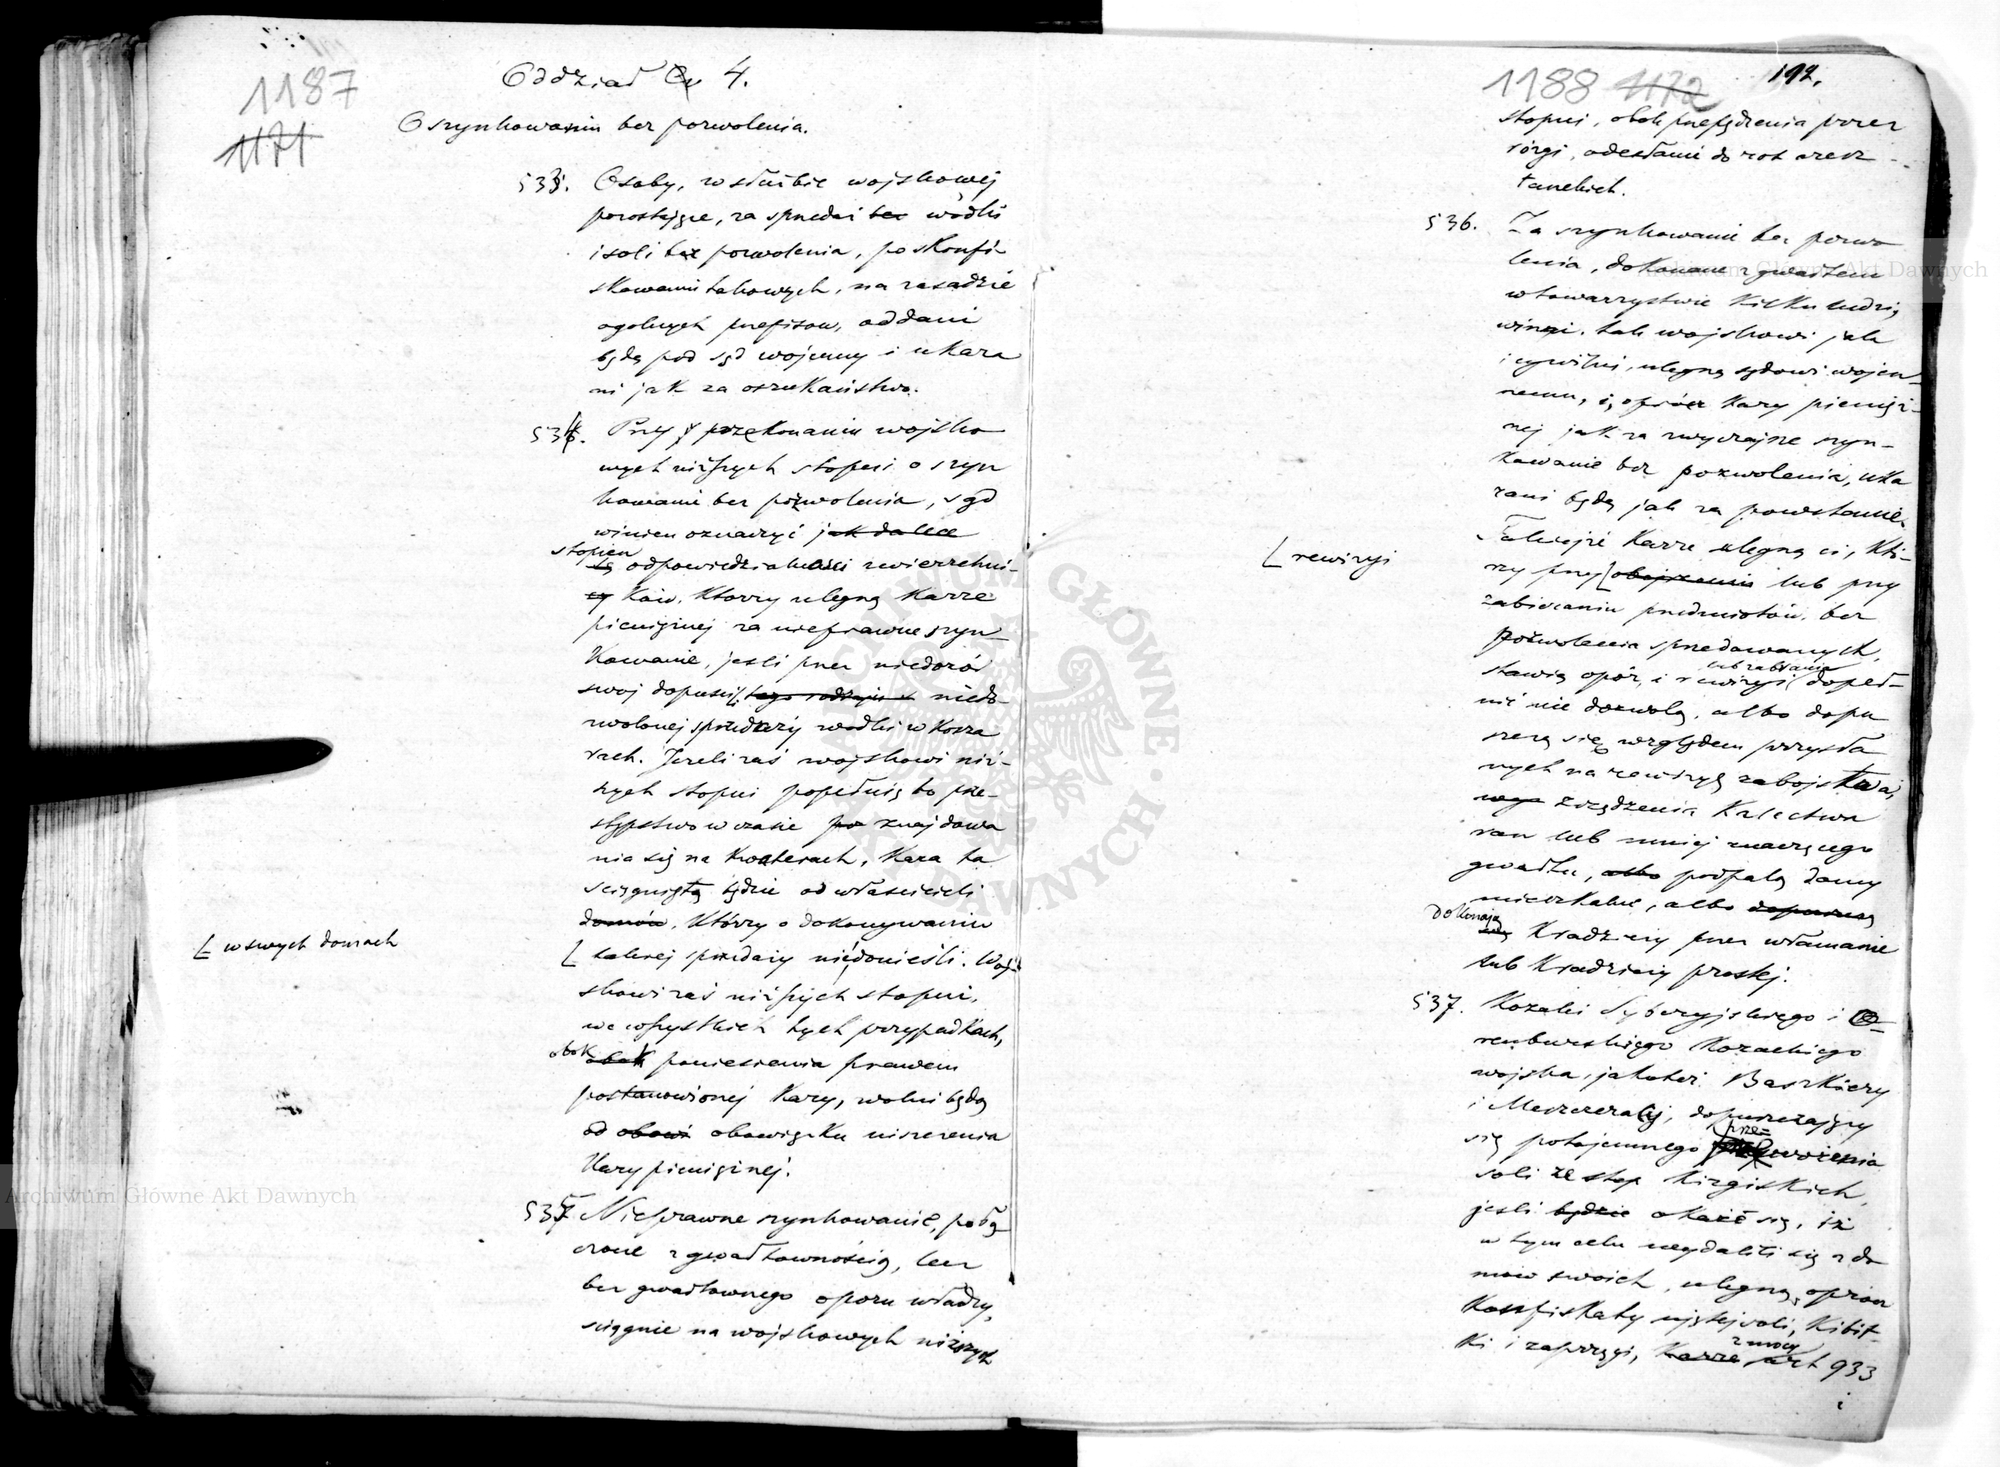 1187
1171
Oddział 4.
O szynkowaniu bez pozwolenia.
533. Osoby, w służbie wojskowej
pozostające, za sprzedaż bez wódki
i soli bez pozwolenia, po skonfi-
skowaniu takowych, na zasadzie
ogolnych przepisow, oddani
będą pod sąd wojenny i ukara
ni jak za oszukaństwo.
534. Przy przekonaniu wojsko
wych niższych stopni o szyn
kowanie bez pozwolenia, sąd
winien oznaczyć jak dalece
stopien
odpowiedzialności zwierzchni-
ków. Ktorzy ulegną Karze
pieniężnej za nieprawne szyn
Kowanie, jeśli przez niedozór
swoj dopuścili tego rodzaju niedo-
zwolonej sprzedaży wodki w Kosza
rach. Jeżeli zaś wojskowi niż-
szych stopni popełnią to prze-
stępstwo w czasie znajdowa
nia się na Kwaterach, Kara ta
sciągniętą będzie od właścicieli
domów, Którzy o dokonywaniu
[ w swych domach
[ takiej sprzedaży niedonieśli. Woj-
skowi zaś niższych stopni,
we wszystkich tych przypadkach,
obok poniesienia prawem
postanowionej Kary, wolni będą
od obowi obowiązku niszczenia
Kary pieniężnej.
535. Nieprawne szynkowanie, połą
czone z gwałtownością, lecz
bez gwałtownego oporu władzy,
sciągnie na wojskowych niższych
1188 1172 192.
stopni, obok przepędzenia przez
rózgi, odesłanie do rot aresz-
tanckich.
536. Za szynkowanie bez pozwo
lenia, dokonane z gwałtem
w towarzystwie Kilku ludzi,
winni, tak wojskowi jak
i cywilni, ulegną sądowi wojen-
nemu, i, oprócz Kary pienięż-
nej jak za zwyczajne szyn-
kowanie bez pozwolenia, uka
rani będą jak za powstanie.
Takiejże Karze ulegną ci, Któ-
rzy przy [ obejrzeniu lub przy
[ rewizyi
zabieraniu przedmiotów bez
pozwolenia sprzedawanych,
stawią opór, i rewizyi dopeł-
lub zabrania
nić nie dozwolą, albo dopu
szczą się względem przysła
nych na rewizyę zabojstwa,
zrządzenia Kalectwa
ran lub mniej znaczącego
gwałtu, albo podpalą domy
mieszkalne, albo dopuszczą
dokonają
Kradzieży przez włamanie
lub Kradzieży prostej.
537. Kozaki Syberyjskiego i O-
renburskiego Kozackiego
wojska, jakoteż Baszkiery
i Meszczeracy, dopuszczający
się potajemnego prze-
wożenia
soli ze step Kirgiskich,
jeśli będzie okaże się, iż
w tym celu wydalili się z do
mow swoich, ulegną, oprocz
Konfiskaty ujętej soli, Kibit-
ki i zaprzęgi, Karze art 933
z mocy
i